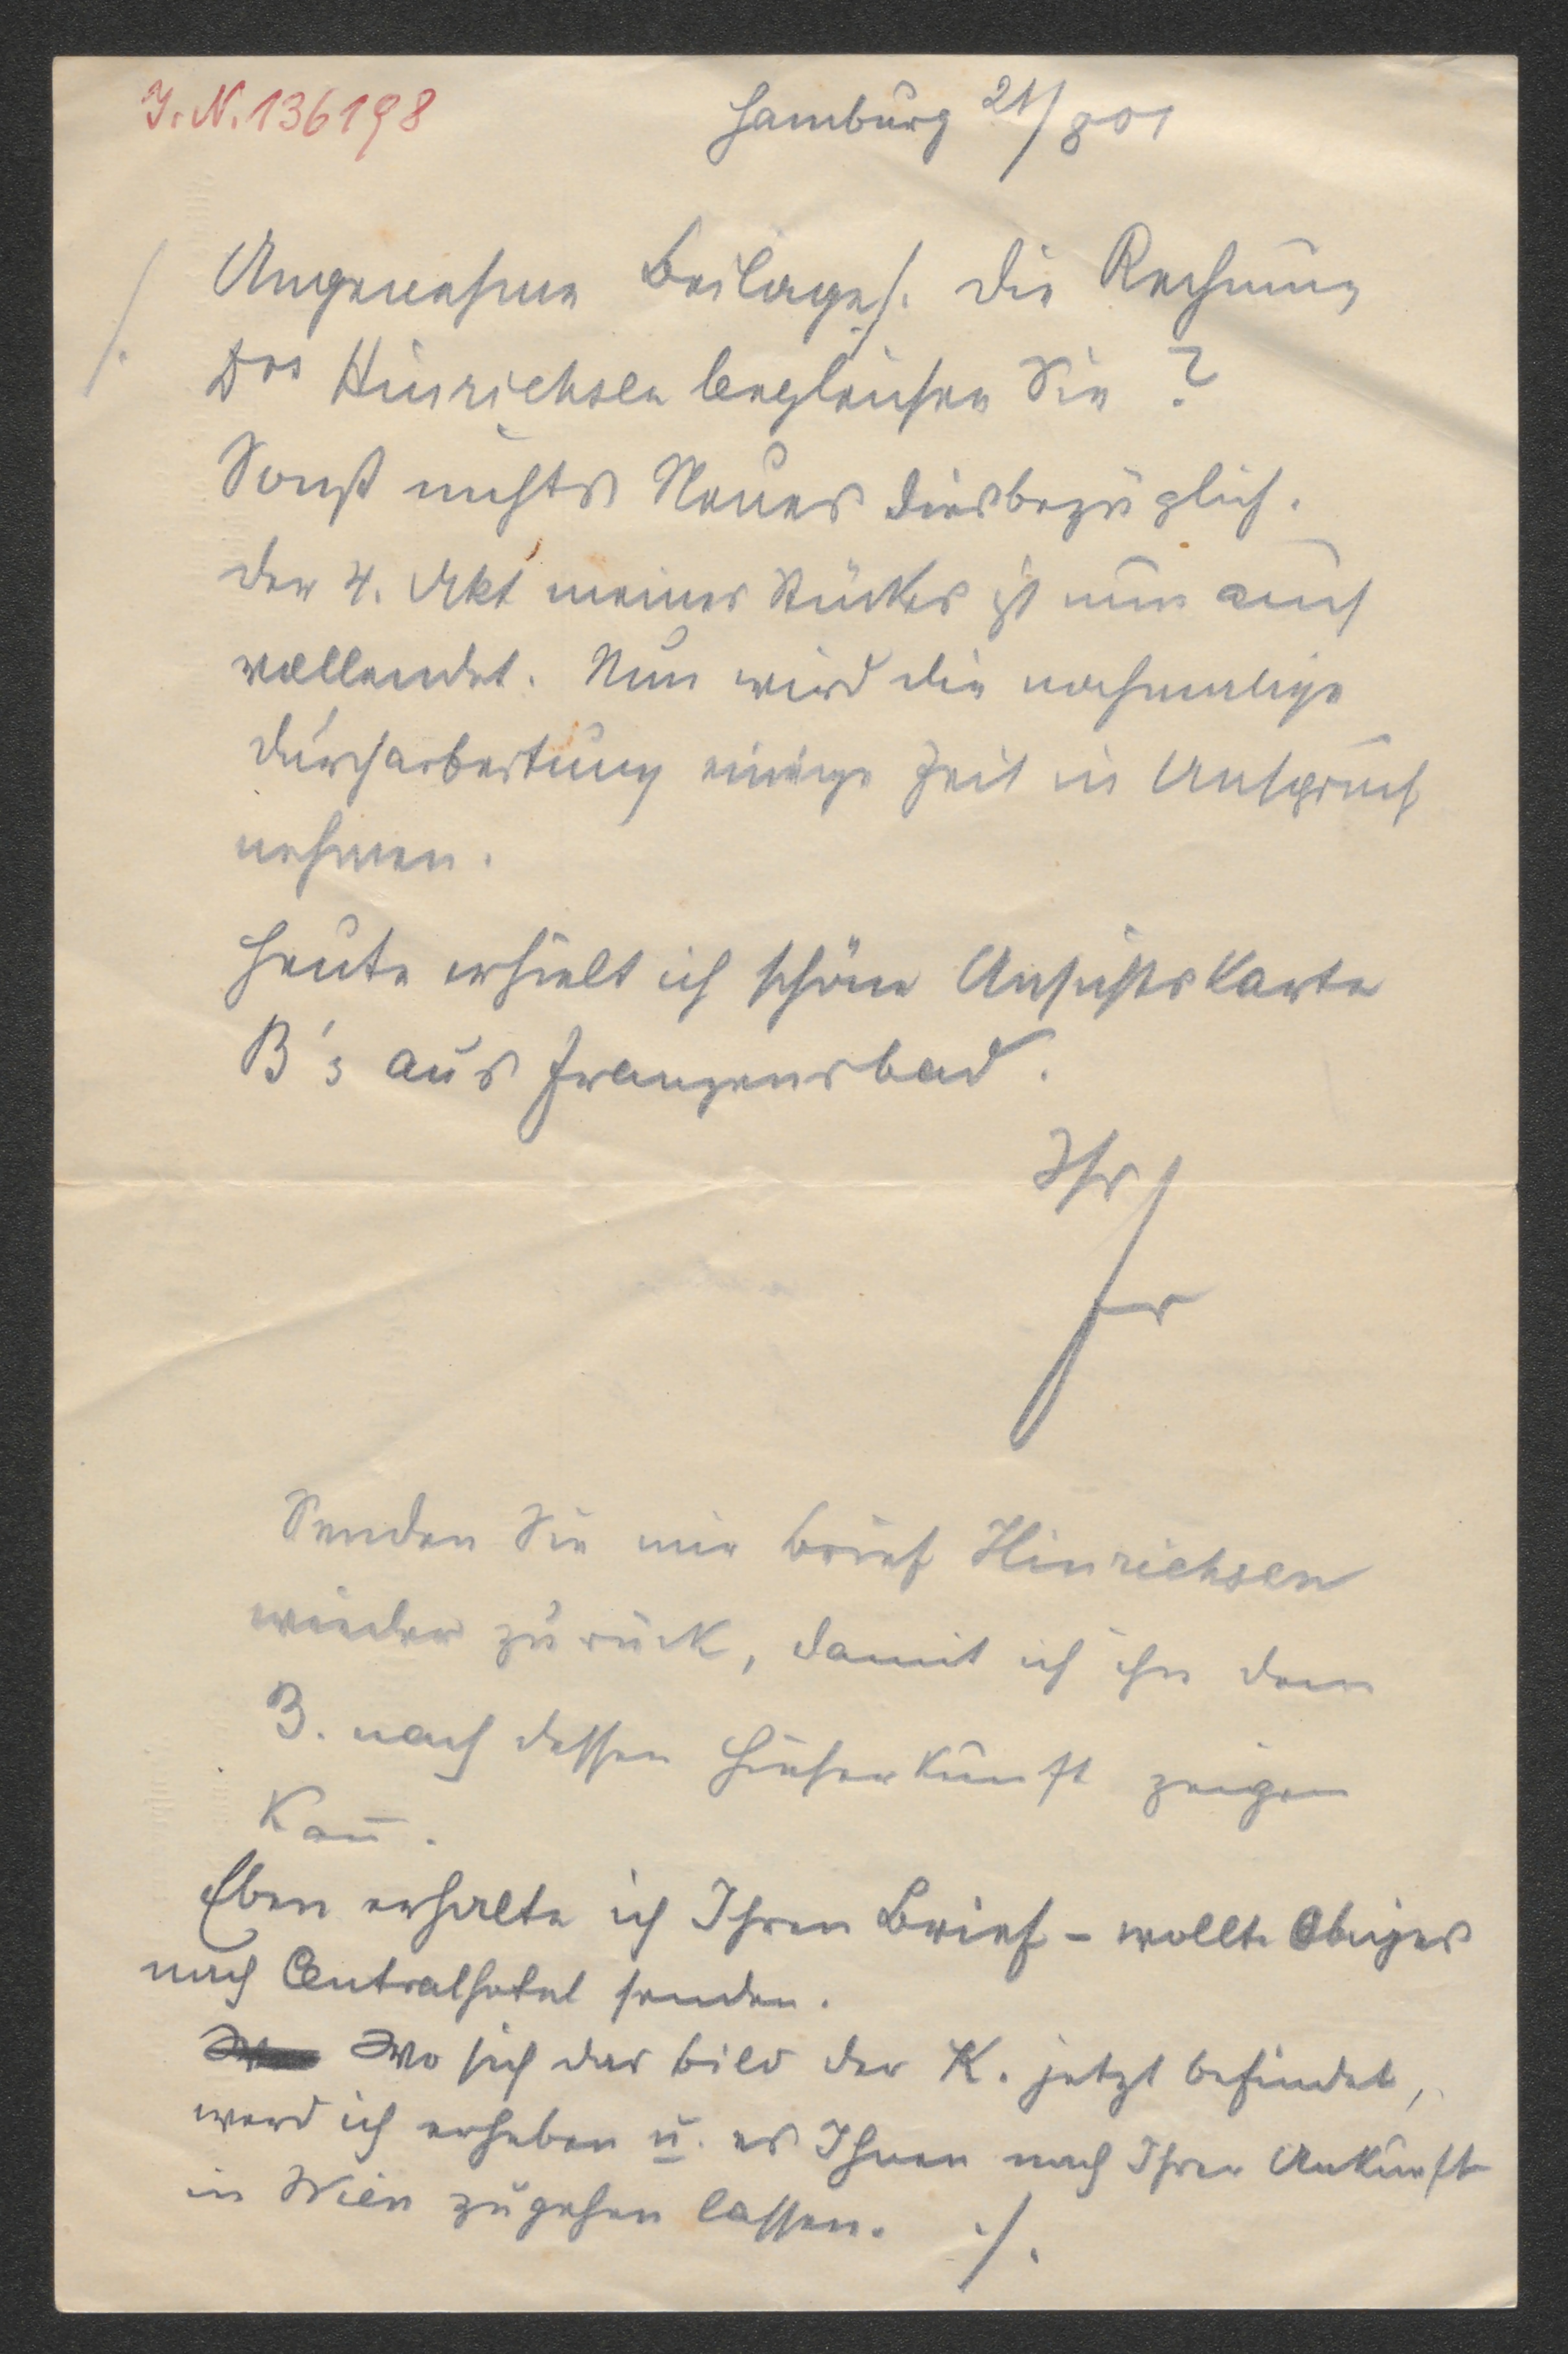 J. N. 136198
Hamburg 21/8 01
./. Angenehme Beilage ./. Die Rechnung
Drs Hinrichsen begleichen Sie?
Sonst nichts Neues diesbezüglich.
Der 4. Akt meines Stückes ist nun auch
vollendet. Nun wird die nochmalige
Durcharbeitung einige Zeit in Anspruch
nehmen.
Heute erhielt ich schöne Ansichtskarte
B's aus Franzensbad.
Ihr
Senden Sie mir Brief Hinrichsen
wieder zurück, damit ich ihn dem
B. nach dessen Hieherkunft zeigen
kann̄.
Eben erhalte ich Ihren Brief – wollte Obiges
nach Centralhotel senden.
Wo sich das Bild der K. jetzt befindet,
werd ich erheben u. es Ihnen nach Ihrer Ankunft
in Wien zugehen lassen. ./.